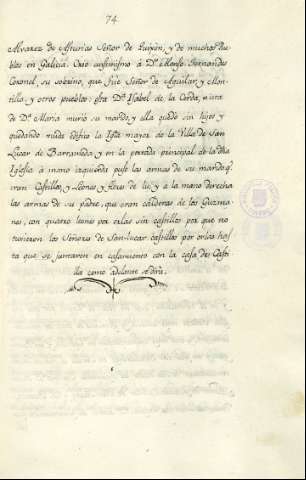 74
Alvarez de Asturias Señor de Guixón, y de muchos Pue
blos en Galicia. Crio asimismo á Dn. Alonso Fernandez
Coronel, su sobrino, que fué Señor de Aguilar, y Mon-
tilla, y otros pueblos: esta Da. Isabel de la Cerda, nuera
de Da. Maria murió su marido, y ella quedó sin hijos y
quedando viuda edificó la Iglª mayor de la Villa de San
Lucar de Barrameda, y en la portada principal de la dha
Iglesia á mano izquierda puso las armas de su marido q.
eran Castillos, y Leones y flores de lis, y a la mano derecha
las armas de su padre, que eran calderas de los Guzma-
nes, con quatro leones por orlas sin castillos por que no
tuvieron los Señores de San-lucar castillos por orlas has
ta que se juntaron en casamiento con la casa de Casti
lla como adelante se dirá.